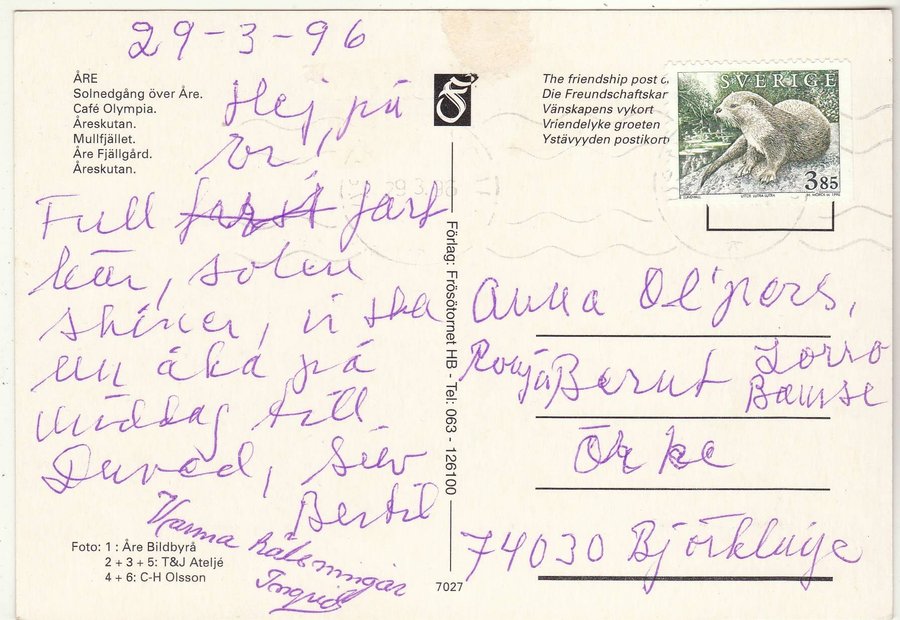 29-3-96
ÅRE
Solnedgång över Åre.
Café Olympia.
Åreskutan.
Mullfjället.
Åre Fjällgård.
Åreskutan.
Hej, på
Er,
Full fart
här, solen
skiner, vi ska
nu åka på
middag till
Duved, Siv
Bertil
Varma hälsningar
Ingrid
Foto: 1 : Åre Bildbyrå
2 + 3 + 5: T&J Ateljé
4 + 6: C-H Olsson
Förlag: Frösötornet HB - Tel: 063 - 126100
7027
The friendship post c
Die Freundschaftskar
Vänskapens vykort
Vriendelyke groeten
Ystävyyden postikort
SVERIGE
3.85
29.3.96
Anna Ol'pers,
Ronja Bernt Zorro
Bamse
74030 Björklinge